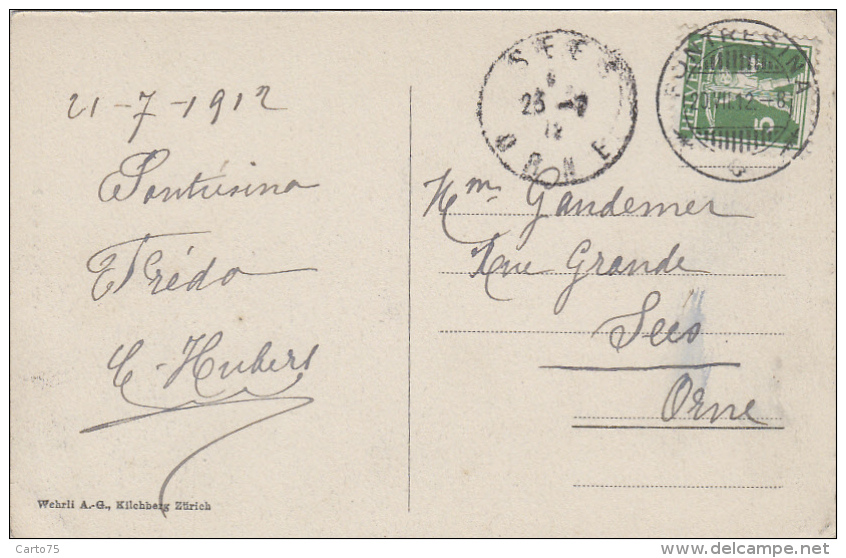 21-7-1912
Pontresina
Frédo
C-Hubert
Wehrli A.-G., Kilchberg Zürich
SEES
23 -7
12
ORNE
PONTRESINA
20.VII.12
HELVETIA
5
Mme Gandemer
Rue Grande
Sees
Orne
Carto75
http://www.delcampe.net